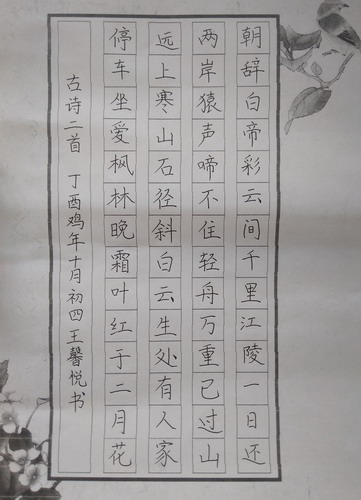 朝辞白帝彩云间千里江陵一日还
两岸猿声啼不住轻舟万重已过山
远上寒山石径斜白云生处有人家
停车坐爱枫林晚霜叶红于二月花
古诗二首 丁酉鸡年十月初四王馨悦书